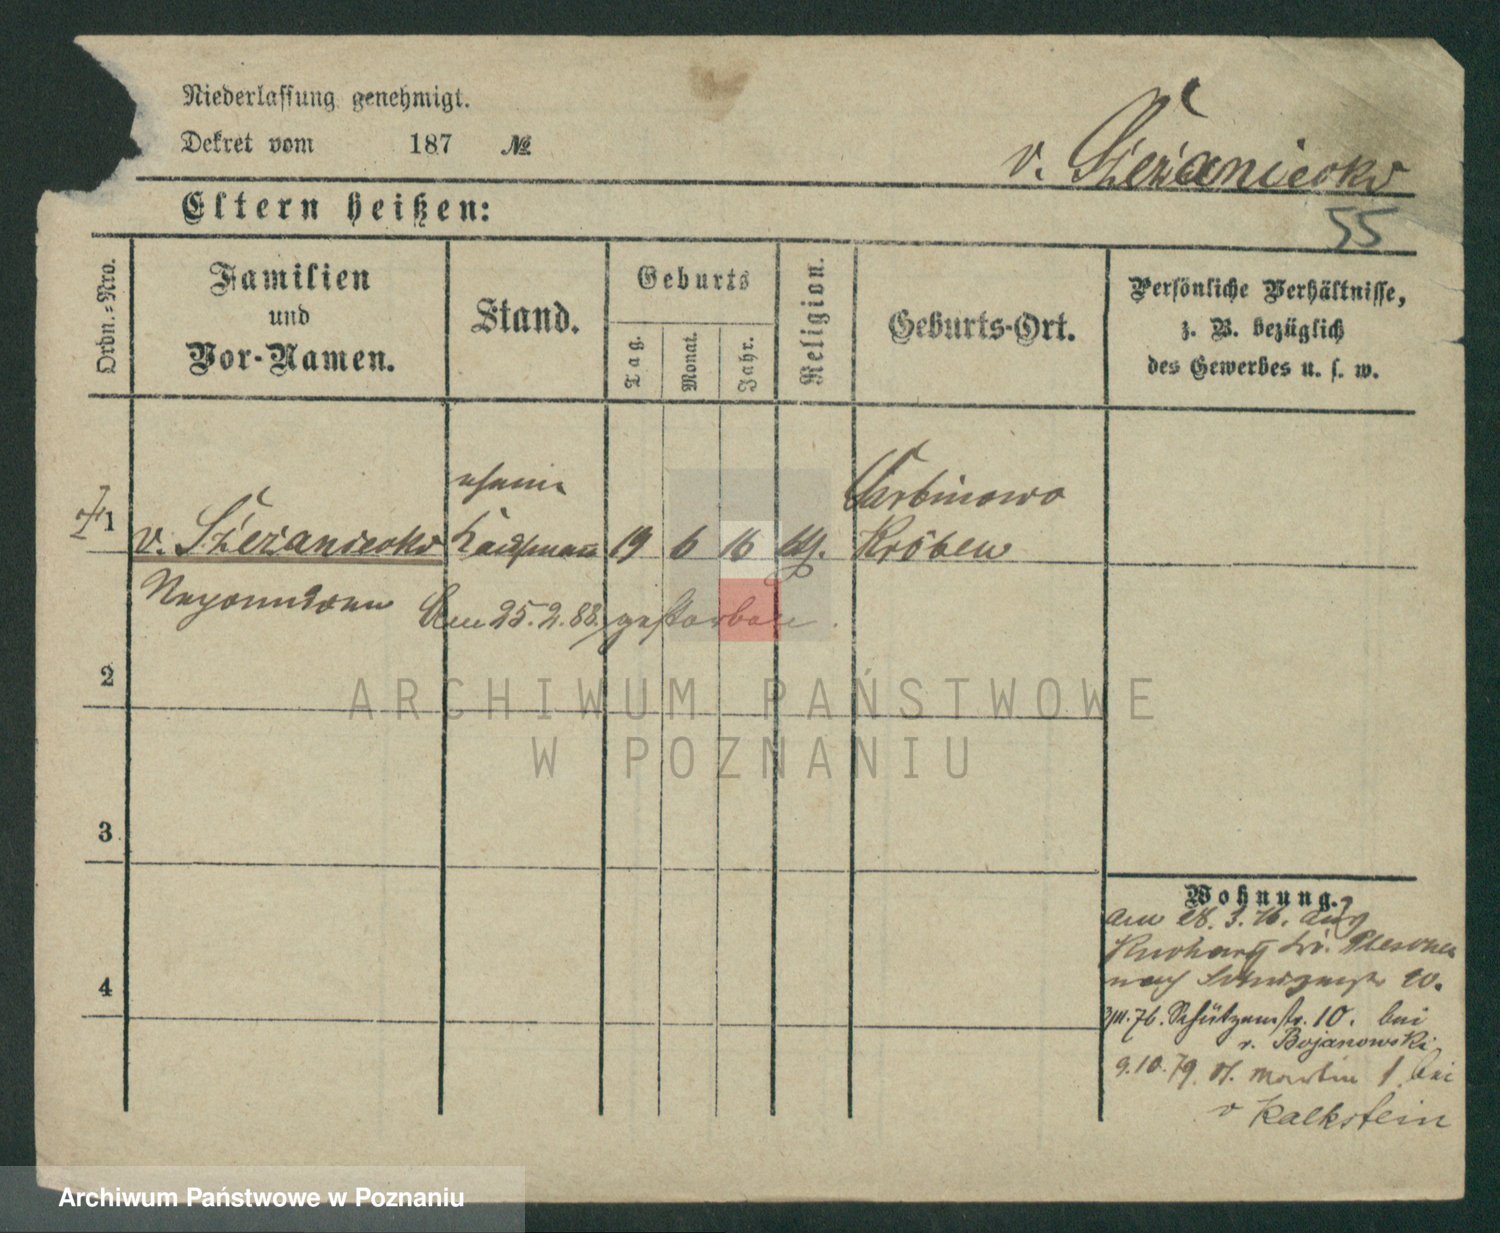 Niederlassung genehmigt.
Dekret vom 187 №
v. Sczaniecka
55
Eltern heißen:
Ordn.-Nro.
Familien
und
Vor-Namen.
Stand.
Geburts
Tag.
Monat.
Jahr.
Religion.
Geburts-Ort.
Persönliche Verhältnisse,
z. B. bezüglich
des Gewerbes u. s. w.
1
Kaufmann 19 6 16
Kröben
Nepomucen
Am 25.2.88. gestorben.
2
3
4
ARCHIWUM PAŃSTWOWE
W POZNANIU
Wohnung.
am 28. 3. 76. aus
nach 10.
76. Schützenstr. 10. bei
v. Bojanowski
9.10.79. St. Martin 1. bei
v Kalkstein
Archiwum Państwowe w Poznaniu